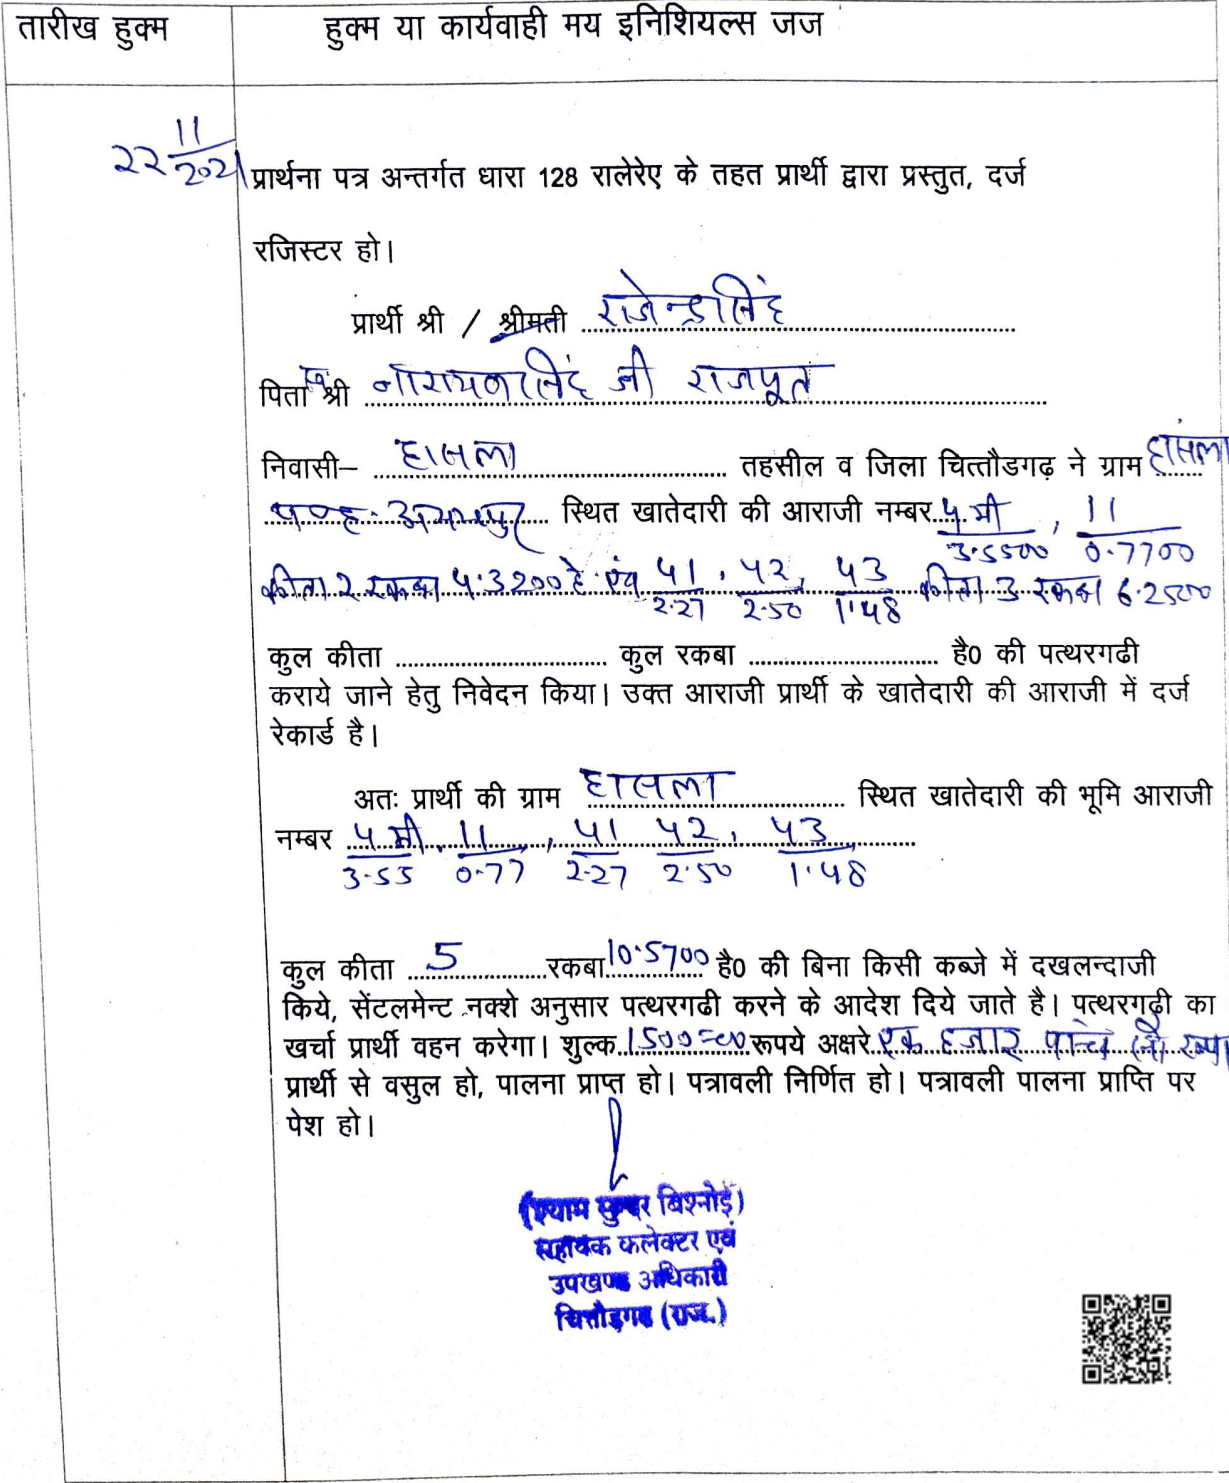 तारीख हुक्म
हुक्म या कार्यवाही मय इनिशियल्स जज
22 11/2021
प्रार्थना पत्र अन्तर्गत धारा 128 रालेरेए के तहत प्रार्थी द्वारा प्रस्तुत, दर्ज
रजिस्टर हो।
प्रार्थी श्री / श्रीमती राजेन्द्रसिंह
पिता स्व श्री नारायणसिंह जी राजपूत
निवासी– हासला तहसील व जिला चित्तौडगढ़ ने ग्राम हांसला
स्थित खातेदारी की आराजी नम्बर 4 मी/3.5500, 11/0.7700
कीता 2 रकबा 4.3200 है एंव 41/2.27, 42/2.50, 43/1.48 कीता 3 रकबा 6.2500
कुल कीता .......... कुल रकबा .......... है0 की पत्थरगढी
कराये जाने हेतु निवेदन किया। उक्त आराजी प्रार्थी के खातेदारी की आराजी में दर्ज
रेकार्ड है।
अतः प्रार्थी की ग्राम हासला स्थित खातेदारी की भूमि आराजी
नम्बर 4 मी/3.55, 11/0.77, 41/2.27 42/2.50, 43/1.48
कुल कीता 5 रकबा 10.5700 है0 की बिना किसी कब्जे में दखलन्दाजी
किये, सेंटलमेन्ट नक्शे अनुसार पत्थरगढी करने के आदेश दिये जाते है। पत्थरगढ़ी का
खर्चा प्रार्थी वहन करेगा। शुल्क 1500=00 रूपये अक्षरे एक हजार पान्च सौ रूपा
प्रार्थी से वसुल हो, पालना प्राप्त हो। पत्रावली निर्णित हो। पत्रावली पालना प्राप्ति पर
पेश हो।
(श्याम सुन्दर बिश्नोई)
सहायक कलेक्टर एवं
उपखण्ड अधिकारी
चित्तौड़गढ (राज.)